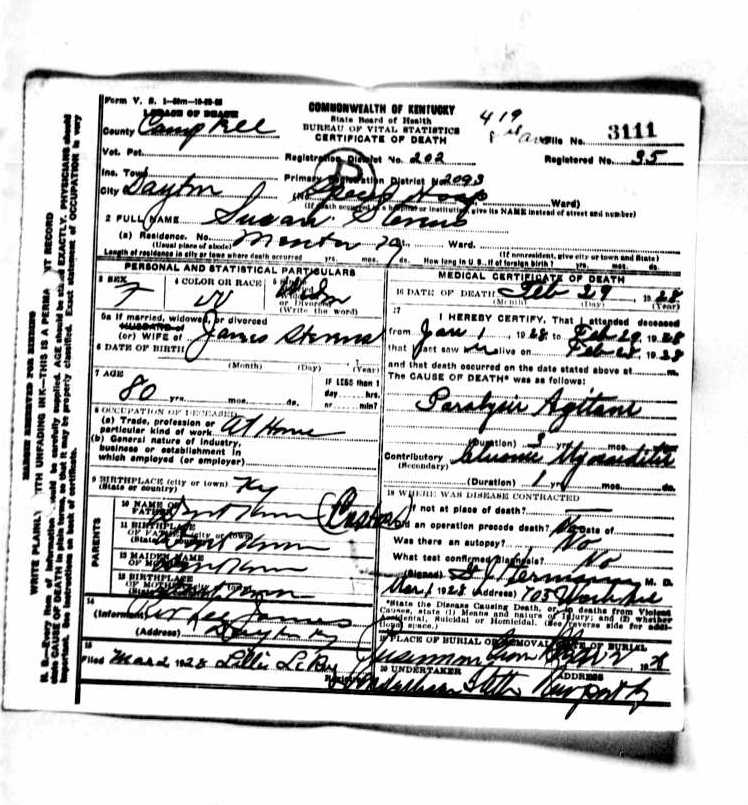 Form V. S. 1-
COMMONWEALTH OF KENTUCKY
State Board of Health
BUREAU OF VITAL STATISTICS
CERTIFICATE OF DEATH
419
File No. 3111
PLACE OF DEATH
County Campbell
Vot. Pct.
Registration District No. 202
Registered No. 35
Inc. Town
Primary Registration District No. 2093
City Dayton
(No. Speers Hosp Ward)
(If death occurred in a hospital or institution, give its NAME instead of street and number)
2 FULL NAME Susan
(a) Residence. No. Mentor Ky St., Ward.
(Usual place of abode)
(If nonresident, give city or town and State)
Length of residence in city or town where death occurred yrs. mos. ds. How long in U. S., if of foreign birth? yrs. mos. ds.
PERSONAL AND STATISTICAL PARTICULARS
3 SEX F
4 COLOR OR RACE W
5 Single
Married
Widowed
or Divorced
(Write the word)
5a If married, widowed, or divorced
HUSBAND of
(or) WIFE of James
6 DATE OF BIRTH
(Month) (Day) (Year)
7 AGE
80 yrs. mos. ds.
IF LESS than 1
day hrs.
or min?
8 OCCUPATION OF DECEASED
(a) Trade, profession or
particular kind of work At Home
(b) General nature of industry,
business or establishment in
which employed (or employer)
9 BIRTHPLACE (city or town) Ky
(State or country)
PARENTS
10 NAME OF
FATHER Dont Know
11 BIRTHPLACE
OF FATHER (city or town)
Dont Know
12 MAIDEN NAME
OF MOTHER Dont Know
13 BIRTHPLACE
OF MOTHER
Dont Know
14
(Informant) Rev Lee James
(Address) Dayton Ky
15
Filed Mar 2 1928 Lillie
Registrar
MEDICAL CERTIFICATE OF DEATH
16 DATE OF DEATH Feb 29 1928
(Month) (Day) (Year)
17
I HEREBY CERTIFY, That I attended deceased
from Jan 1, 1928 to Feb 29, 1928
that I last saw her alive on Feb 28, 1928
and that death occurred on the date stated above at m.
The CAUSE OF DEATH* was as follows:
Paralysis Agitans
(Duration) 3 yrs. mos. ds.
Contributory Chronic Myocarditis
(Secondary)
(Duration) 1 yrs. mos. ds.
18 WHERE WAS DISEASE CONTRACTED
if not at place of death?
Did an operation precede death? No Date of
Was there an autopsy? No
What test confirmed diagnosis? No
(Signed) M. D.
Mar 1, 1928 (Address) 703
*State the Disease Causing Death, or, in deaths from Violent
Causes, state (1) Means and nature of Injury; and (2) whether
Accidental, Suicidal or Homicidal. (See reverse side for addi-
tional space.)
19 PLACE OF BURIAL OR REMOVAL DATE OF BURIAL
20 UNDERTAKER ADDRESS
Newport Ky
MARGIN RESERVED FOR BINDING
WRITE PLAINLY WITH UNFADING INK—THIS IS A PERMANENT RECORD
N. B.—Every item of information should be carefully supplied. AGE should be stated EXACTLY. PHYSICIANS should
state CAUSE OF DEATH in plain terms, so that it may be properly classified. Exact statement of OCCUPATION is very
important. See instructions on back of certificate.